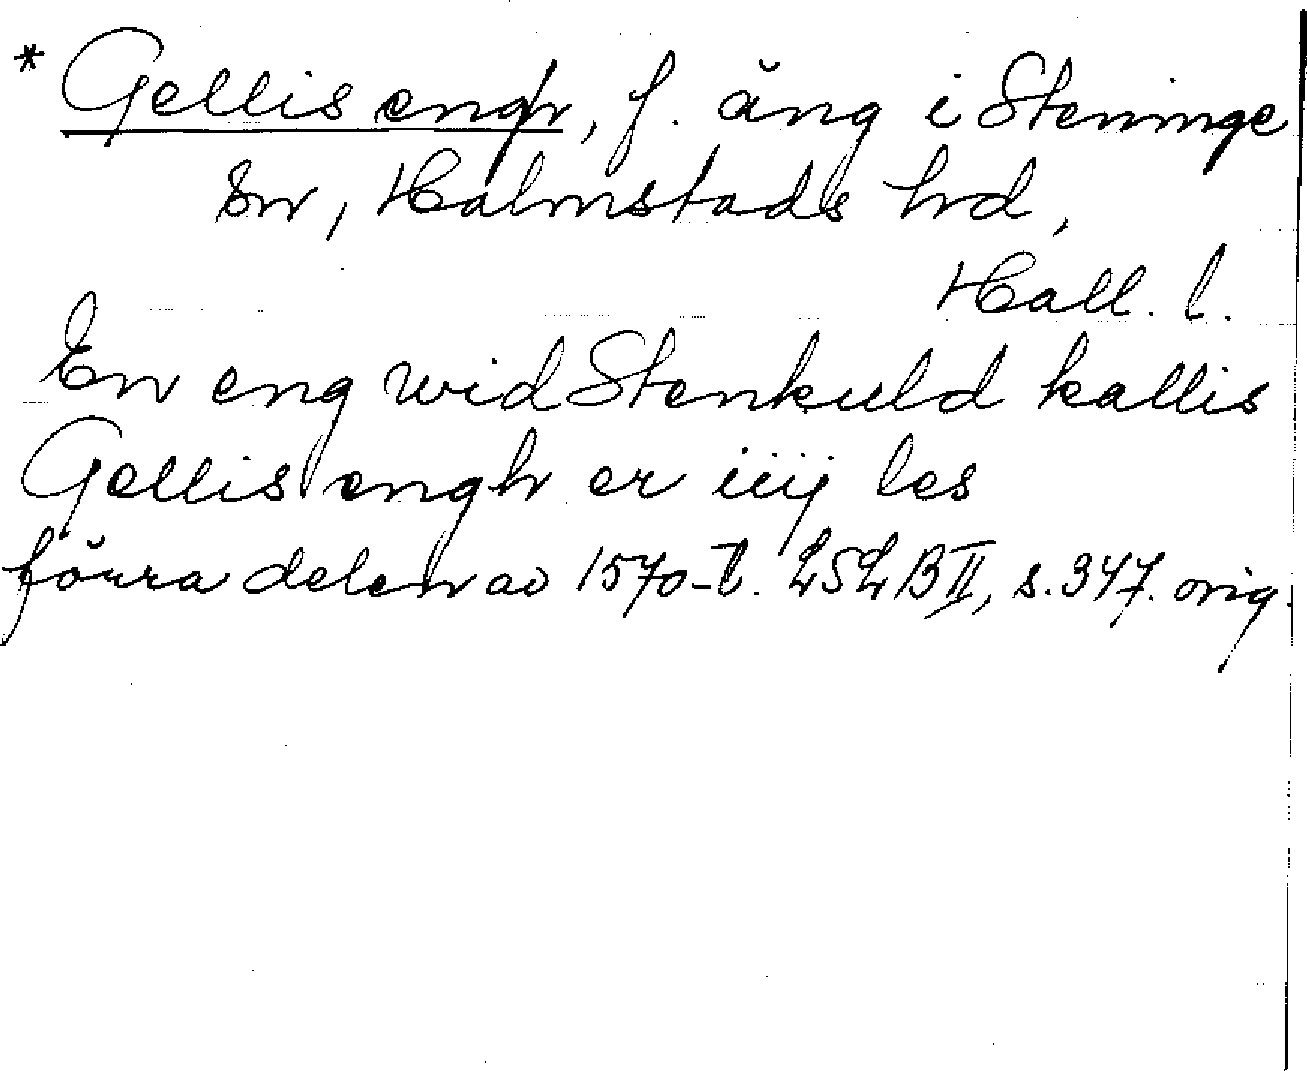 * Gellis engh, f. äng i Steninge
sn, Halmstads hrd,
Hall. l.
En eng wid Stenkuld kallis
Gellis engh er iiij les
förra delen av 1570-t. LSLBII, s. 347. orig.